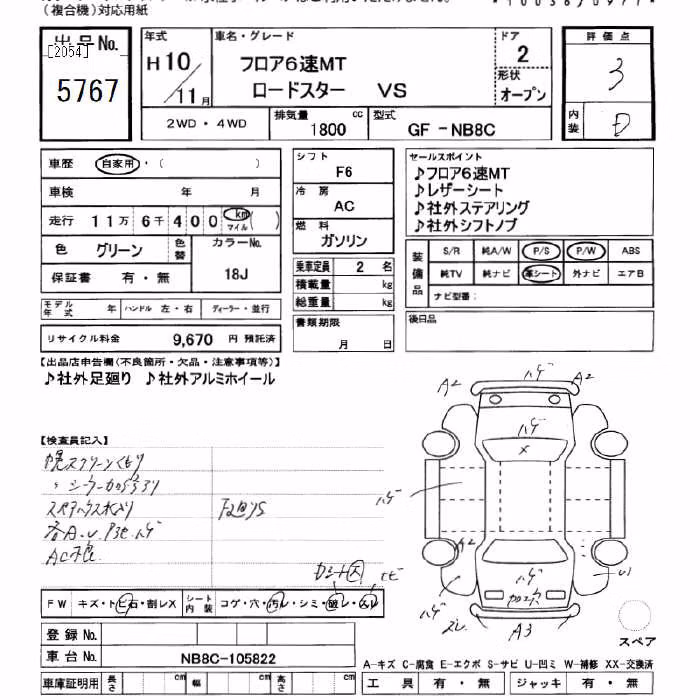 (複合機)対応用紙
出品No.
[2054]
5767
年式
H10/11月
車名・グレード
フロア6速MT
ロードスター VS
ドア
2
形状
オープン
評価点
3
内装
D
2WD・4WD
排気量
1800 cc
型式
GF-NB8C
車歴 自家用・( )
車検 年 月
走行 11万 6千 400 km マイル ( )
色 グリーン 色替 カラーNo. 18J
保証書 有・無
モデル年式 年 ハンドル 左・右 ディーラー・並行
リサイクル料金 9,670 円 預託済
シフト
F6
冷房
AC
燃料
ガソリン
乗車定員 2 名
積載量 kg
総重量 kg
書類期限
月 日
セールスポイント
♪フロア6速MT
♪レザーシート
♪社外ステアリング
♪社外シフトノブ
装備品
S/R 純A/W P/S P/W ABS
純TV 純ナビ 革シート 外ナビ エアB
ナビ型番:
後日品
【出品店申告欄(不良箇所・欠品・注意事項等)】
♪社外足廻り ♪社外アルミホイール
【検査員記入】
幌スクリーンくもり
AC不良
ハゲ
A2
A2
ハゲ
X
ハゲ
A2
ハゲ
U1
ハゲ
A3
スペア
FW キズ・トビ石・割レX シート内装 コゲ・穴・汚レ・シミ・破レ・スレ
登録No.
車台No. NB8C-105822
車庫証明用 長さ cm 幅 cm 高さ cm
A-キズ C-腐食 E-エクボ S-サビ U-凹ミ W-補修 XX-交換済
工具 有・無 ジャッキ 有・無